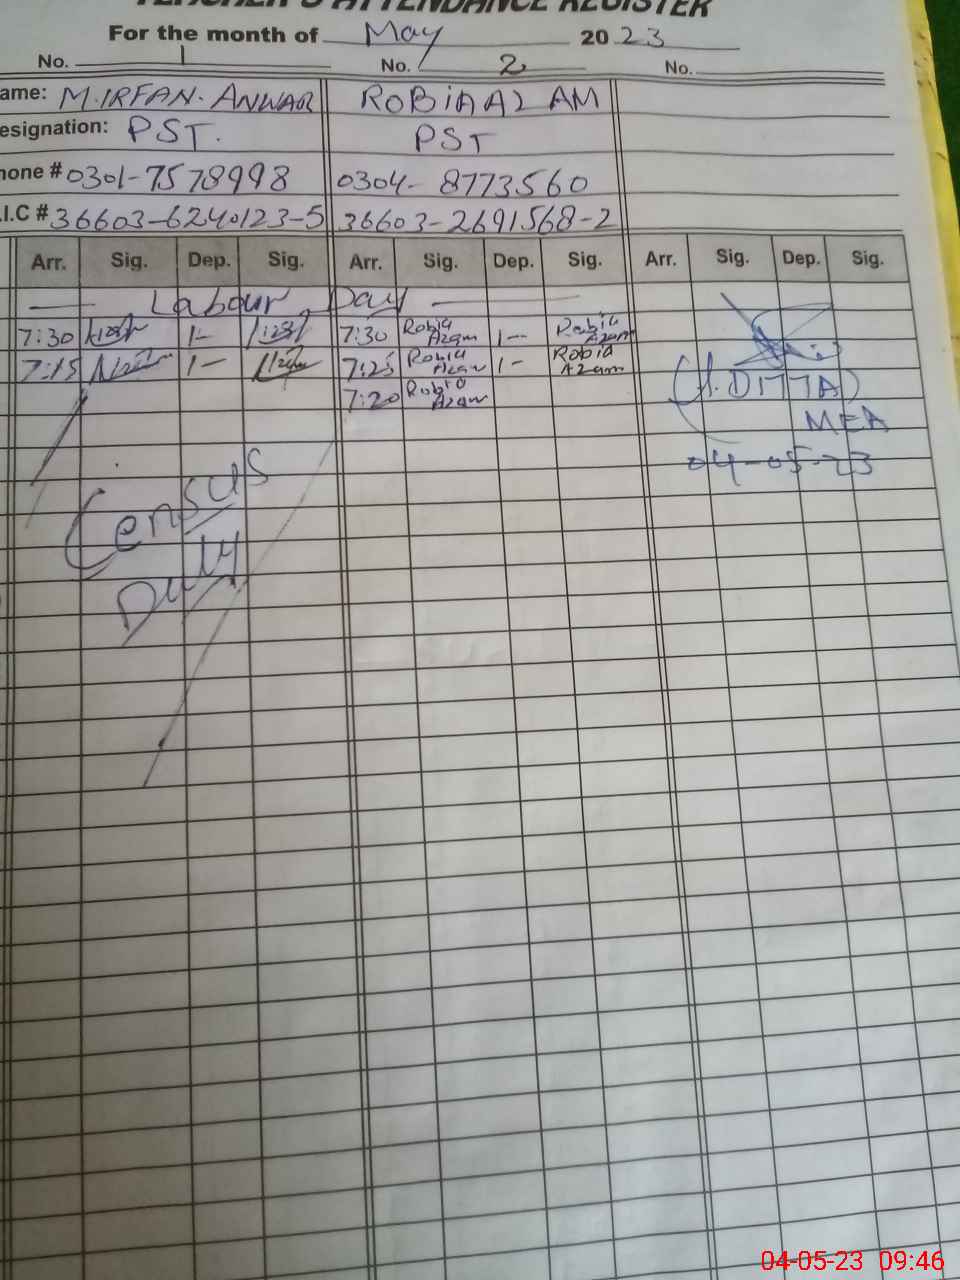 TEACHER'S ATTENDANCE REGISTER
For the month of May 2023
No. 1 No. 2 No.
ame: M.IRFAN. ANWAR ROBIA AZAM
esignation: PST. PST
hone # 0301-7578998 0304-8773560
.I.C # 36603-6240123-5 36603-2691568-2
Arr. Sig. Dep. Sig. Arr. Sig. Dep. Sig. Arr. Sig. Dep. Sig.
Labour Day
7:30 1- 7:30 Robia Azam 1- Robia Azam
7:15 1- 7:25 Robia Azam 1- Robia Azam
7:20 Robia Azam
DITTA)
MEA
04-05-23
Census
Duty
04-05-23 09:46